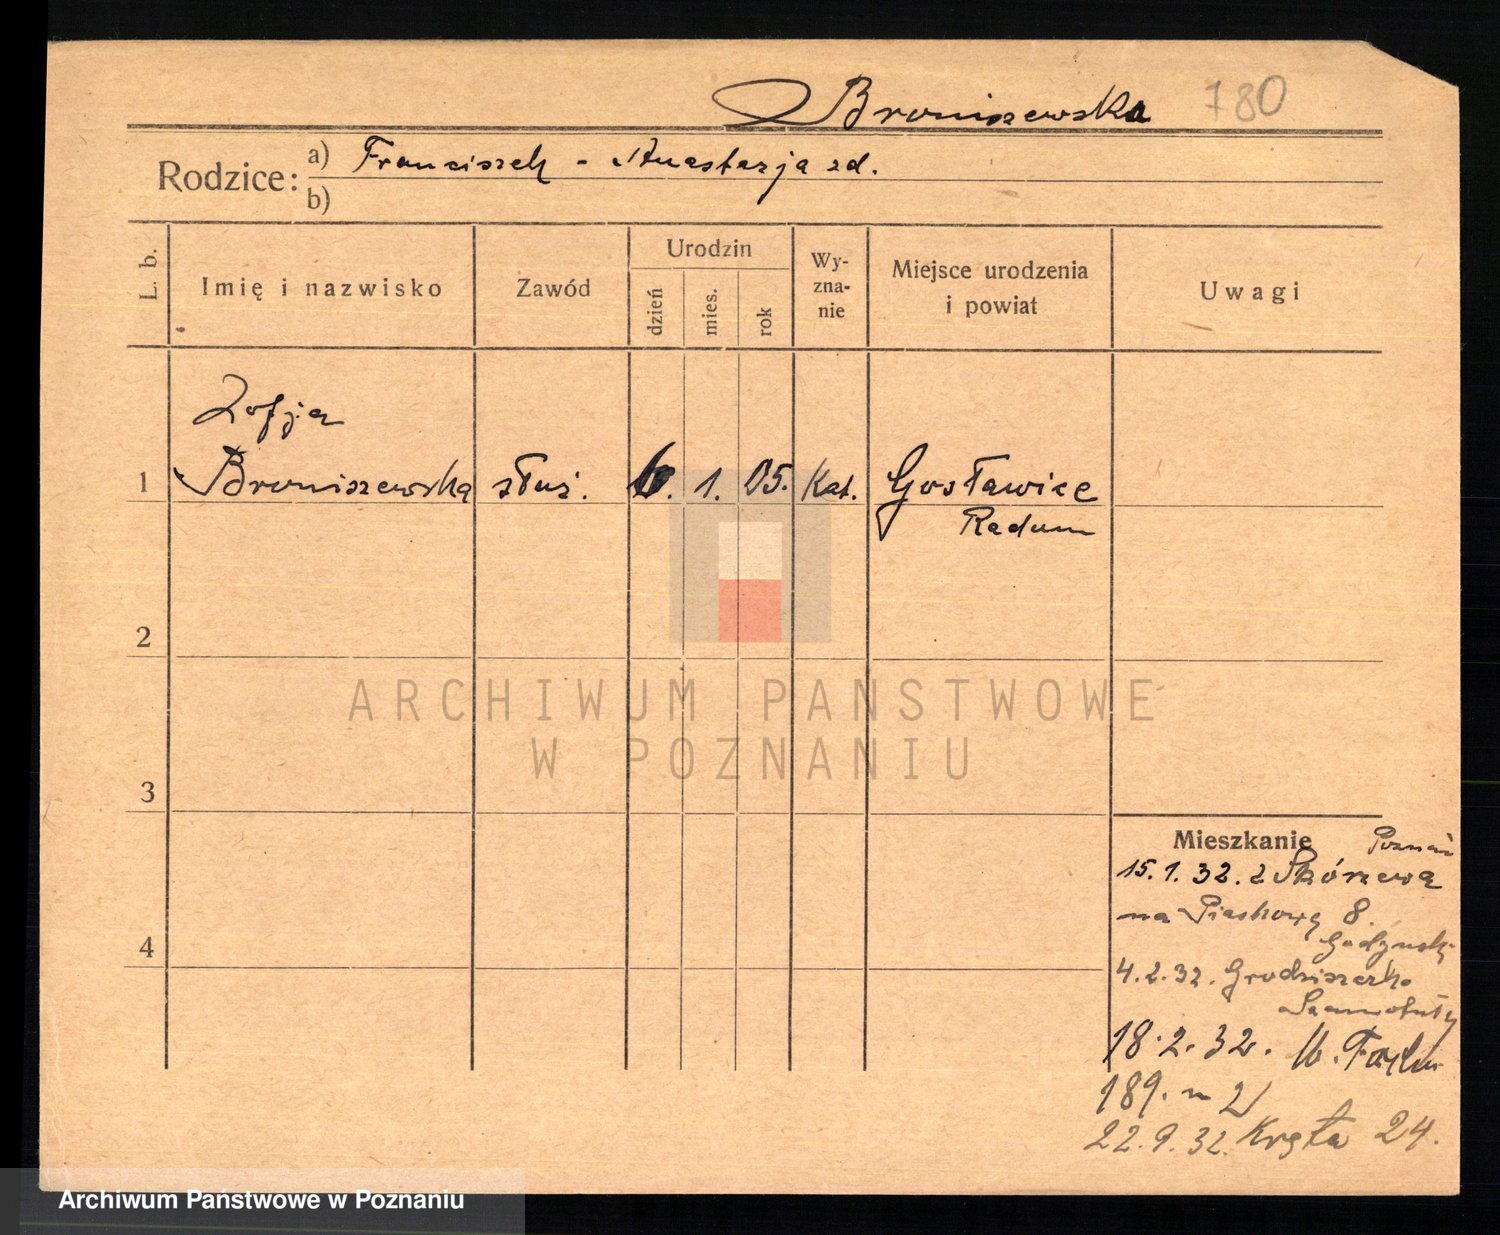 Broniszewska 780
Rodzice: a) Franciszek - Anastazja zd.
b)
L. b.
Imię i nazwisko
Zawód
Urodzin
dzień
mies.
rok
Wy-
zna-
nie
Miejsce urodzenia
i powiat
Uwagi
Zofja
1 Broniszewska służ. 6. 1. 05. Kat. Gosławice
Radom
2
ARCHIWUM PAŃSTWOWE
W POZNANIU
3
Mieszkanie Poznań
15.1.32. z Skórzewa
na Piaskową 8.
4
4.2.32. Grodziszczko
Szamotuły
18.2.32.
189.
22.9.32. Kręta 24.
Archiwum Państwowe w Poznaniu